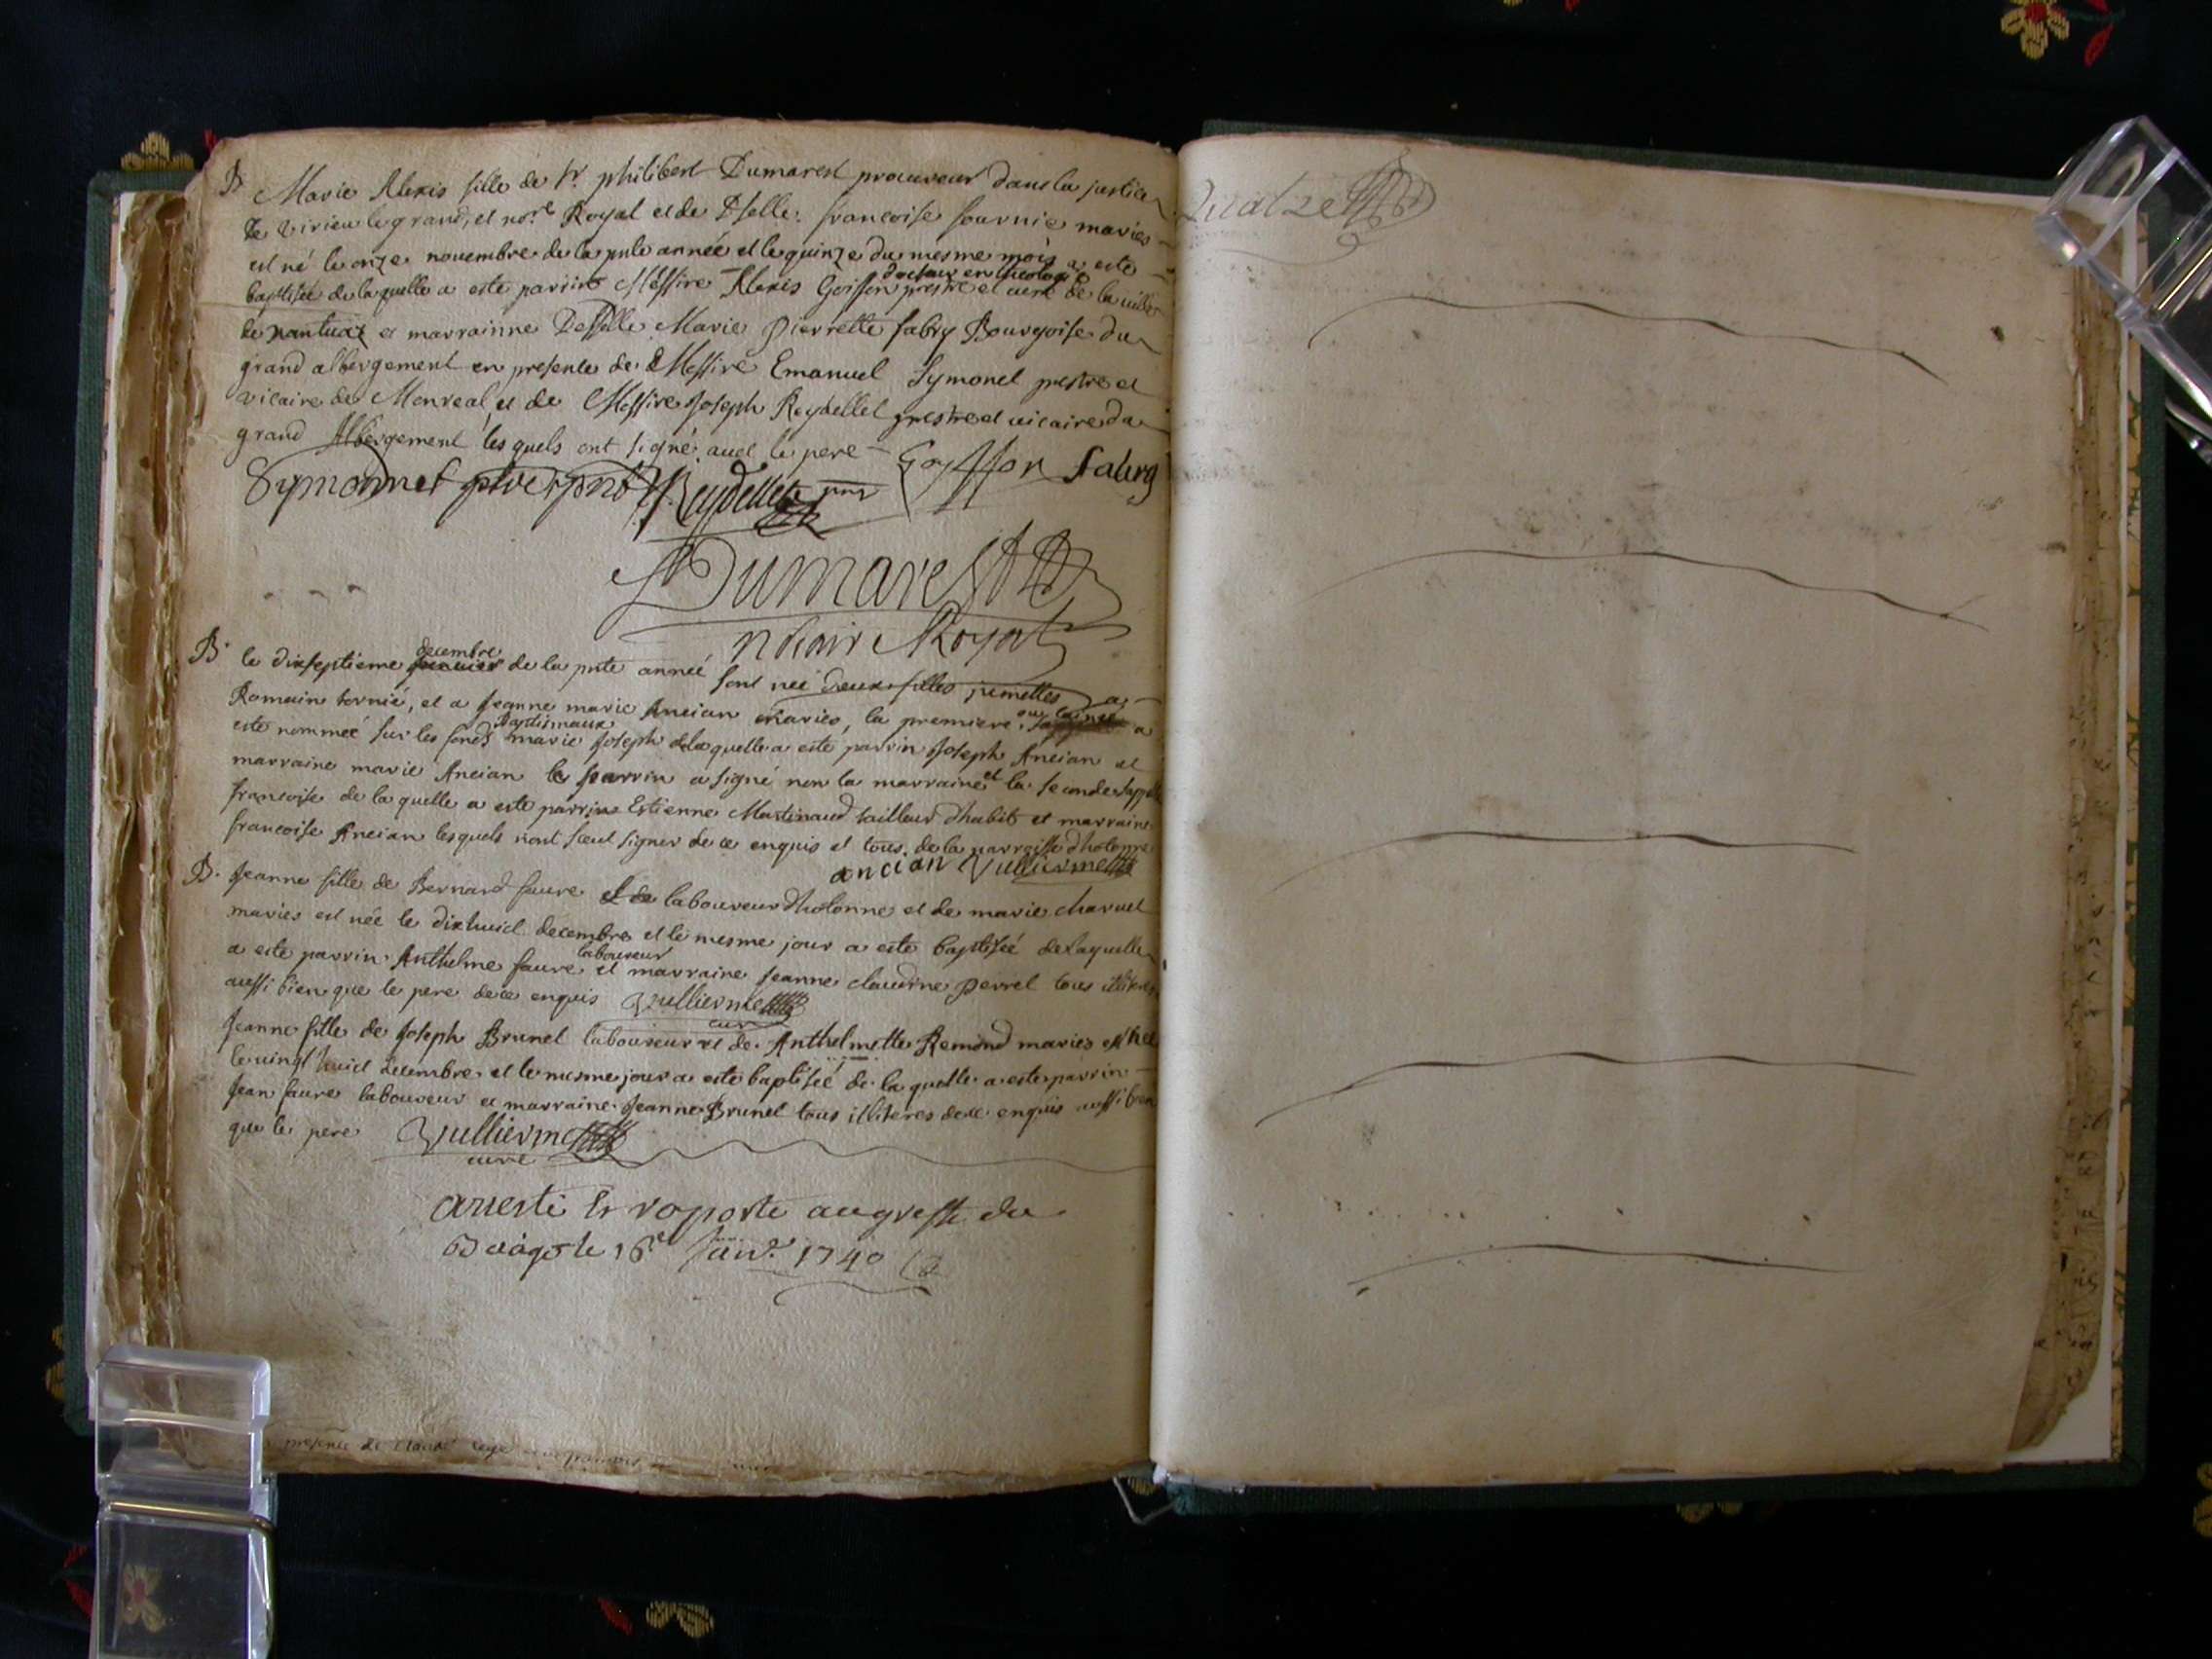 B Marie Alexis fille de Sr. philibert Dumarest procureur dans la justice
de virieu le grand, et nore. Royal et de Dselle. francoise fournie maries
est né le onze novembre de la pnte année et le quinze du mesme mois a este
baptisée de laquelle a este parrin Messire Alexis Goiffon docteur en theologie prestre et curé de la ville
de nantua et marrainne Deselle Marie Pierrette fabry Bourgoise du
grand albergement en presence de Messire Emanuel Symonet prestre et
vicaire de Monreal, et de Messire Joseph Reydellet prestre et vicaire du
grand Albergement lesquels ont signé avec le pere
Symonnet ptre Reydellet Goyffon fabry
Dumarest
notaire Royal
B. le dixseptieme decembre de la pnte anneé sont neé deux filles jumelles a
Romain tornié, et a Jeanne marie Ancian mariés, la premiere ou lainee a
esté nommeé sur les fonds baptismaux marie Joseph de laquelle a esté parrin Joseph Ancian et
marraine marie Ancian le parrin a signé non la marraine et la seconde sappelle
francoise de la quelle a este parrins Estienne Martinaud tailleur dhabits et marraine
francoise Ancian lesquels nont sceut signer de ce enquis et tous de la parroisse dhotonne
ancian Vullierme
B. Jeanne fille de Bernard faure laboureur dhotonne et de marie charvet
maries est née le dixhuict decembre et le mesme jour a este baptiseé de laquelle
a este parrin Anthelme faure laboureur et marraine Jeanne claudine Perret tous illiteres
aussi bien que le pere de ce enquis Vullierme
curé
Jeanne fille de Joseph Brunet laboureur et de Anthelmette Remond maries est née
le vingt huict decembre et le mesme jour a esté baptiseé de la quelle a este parrin
Jean faure laboureur et marraine Jeanne Brunet tous illiteres de ce enquis aussi bien
que le pere Vullierme
curé
arresté et raporté au greffe du
16e Janv. 1740
presence de Claude
Quatze